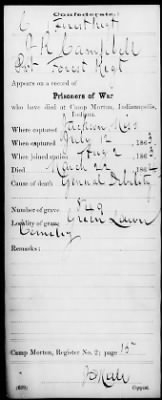 Confederate.
C Forest Regt
J R Campbell
Pvt Forest Regt
Appears on a record of
Prisoners of War
who have died at Camp Morton, Indianapolis,
Indiana.
Where captured Jackson Miss
When captured July 12, 1863.
When joined station Aug 2, 1863.
Died March 22, 186
Cause of death General Debility
Number of grave
Locality of grave Green Lawn
Cemetery
Remarks:
Camp Morton, Register No. 2; page 15
(639) Copyist.